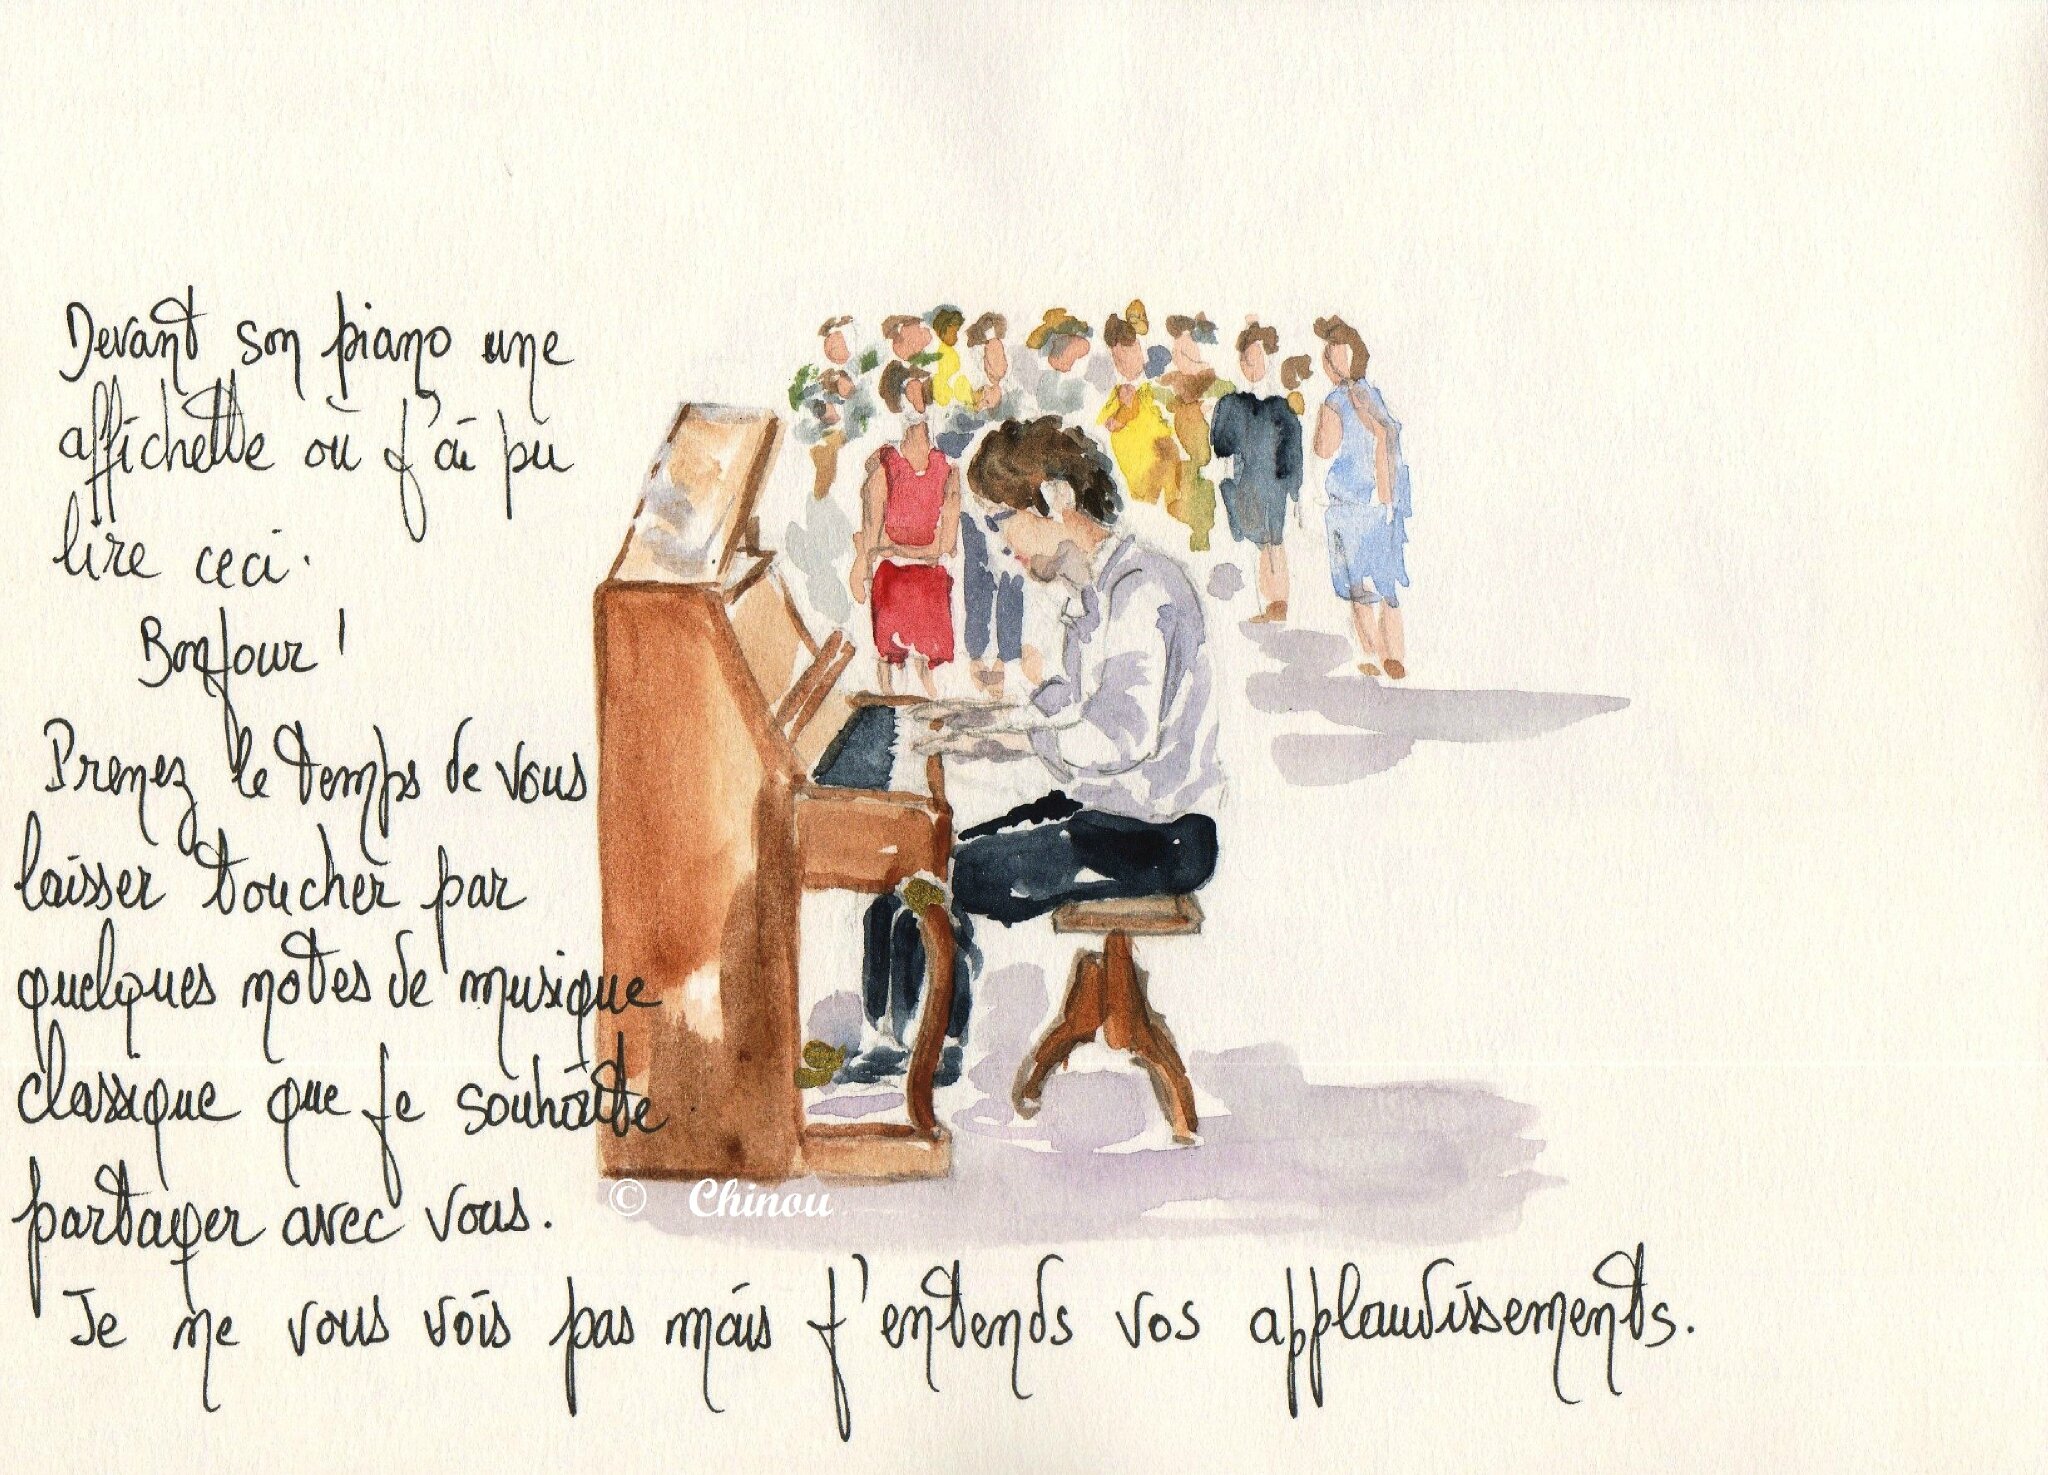 Devant son piano une
affichette où j'ai pu
lire ceci.
Bonjour !
Prenez le temps de vous
laisser toucher par
quelques notes de musique
classique que je souhaite
partager avec vous.
© Chinou
Je ne vous vois pas mais j'entends vos applaudissements.